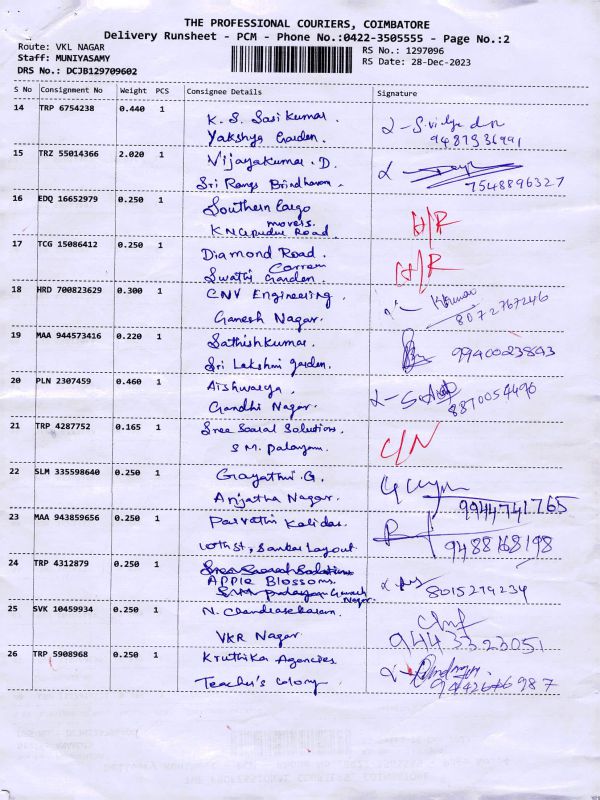 THE PROFESSIONAL COURIERS, COIMBATORE
Delivery Runsheet - PCM - Phone No.:0422-3505555 - Page No.:2
Route: VKL NAGAR
Staff: MUNIYASAMY
DRS No.: DCJB129709602
RS No.: 1297096
RS Date: 28-Dec-2023
S No Consignment No Weight PCS Consignee Details Signature
14 TRP 6754238 0.440 1 K. S. Sasikumar.
Yakshya Garden. 9487936991
15 TRZ 55014366 2.020 1 Vijayakumar. D.
Sri Ranga Brindhavan. 7548896327
16 EDQ 16652979 0.250 1 Southern Cargo
movers.
KNGpudur Road. H/R
17 TCG 15086412 0.250 1 Diamond Road.
Carrom
Swathi Garden. H/R
18 HRD 700823629 0.300 1 CNV Engineering.
Ganesh Nagar. 8072767246
19 MAA 944573416 0.220 1 Sathishkumar.
Sri Lakshmi garden. 9940023843
20 PLN 2307459 0.460 1 Aishwarya.
Gandhi Nagar. 8870054496
21 TRP 4287752 0.165 1 Sree Saaral Solutions.
S M. Palayam. C/N
22 SLM 335598640 0.250 1 Gayathri. G.
Anjatha Nagar. 9944741765
23 MAA 943859656 0.250 1 Parvathi Kalidas.
10th St, Sankar Layout 9488168198
24 TRP 4312879 0.250 1 Sree Saaral Solutions
Apple Blossoms.
S.M palayam Ganesh
Nagar. 8015279234
25 SVK 10459934 0.250 1 N. Chandrasekaran.
VKR Nagar 9443323051
26 TRP 5908968 0.250 1 Kruthika Agencies
Teacher's Colony